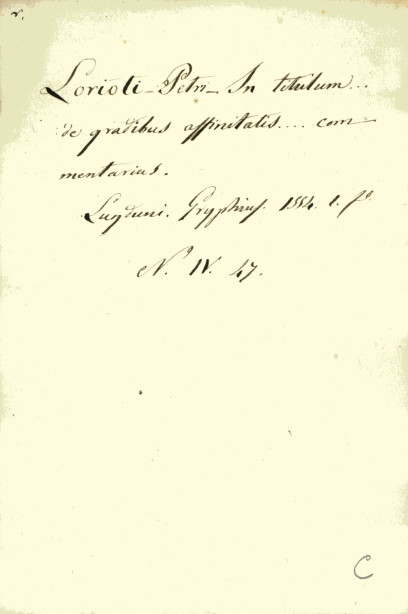 Lorioti - Petri - In titulum...
de gradibus affinitatis.... com-
mentarius.
Lugduni. Gryphius. 1554. 1. fo.
No. IV. 47.
C